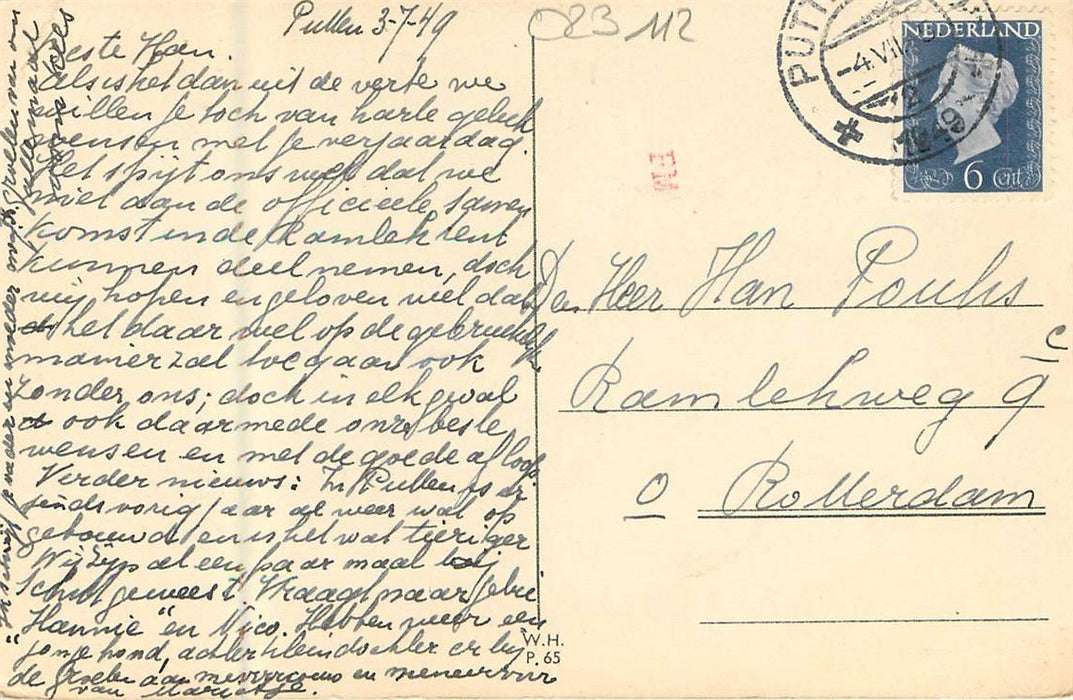 Putten 3-7-49
Beste Han.
Als is het dan uit de verte we
willen je toch van harte geluk
wensen met je verjaardag
Het spijt ons wel dat we
niet aan de officieele samen
komst in de Ramlehtent
kunnen deelnemen, doch
wij hopen en geloven wel dat
het daar wel op de gebruikelijke
manier zal toegaan ook
zonder ons; doch in elk geval
ook daarmede onze beste
wensen en met de goede afloop
Verder nieuws: In Putten is er
sinds vorig jaar al weer wat op
gebouwd en is het wat tieriger
Wij zijn al een paar maal bij
Schut geweest. Vraagt naar gebr.
"Hannie" en Nico. Hebben weer een
jonge hond, achterkleindochter er bij
de groeten aan en meneer
van Marietje.
Ik schrijf je vader en moeder groeten van ons
allemaal
023 112
PUTT
4.VII
12
1949
NEDERLAND
6 Cent
EM
Den Heer Han Pouhs
Ramlehweg 9 c
o Rotterdam
W.H.
P. 65